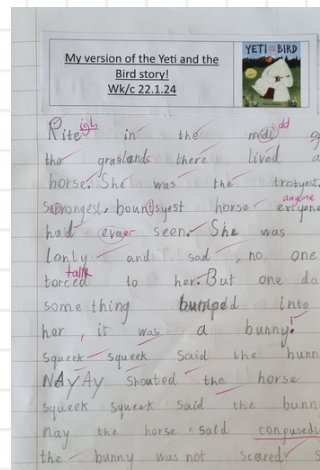 My version of the Yeti and the
Bird story!
Wk/c 22.1.24
YETI AND THE BIRD
Rite igh in the midi dd
the graslands there lived a
horse. She was the trotyest.
Strongest, bountsyest horse anyone
had evaer seen. She was
lonly and sad, no one
torced talk to her. But one da
some thing bumped into
her, it was a bunny.
squeek squeek said the bunn
NAYAY shouted the horse
squeek squeek said the bunn
nay the horse said conpused
the bunny was not scared. S